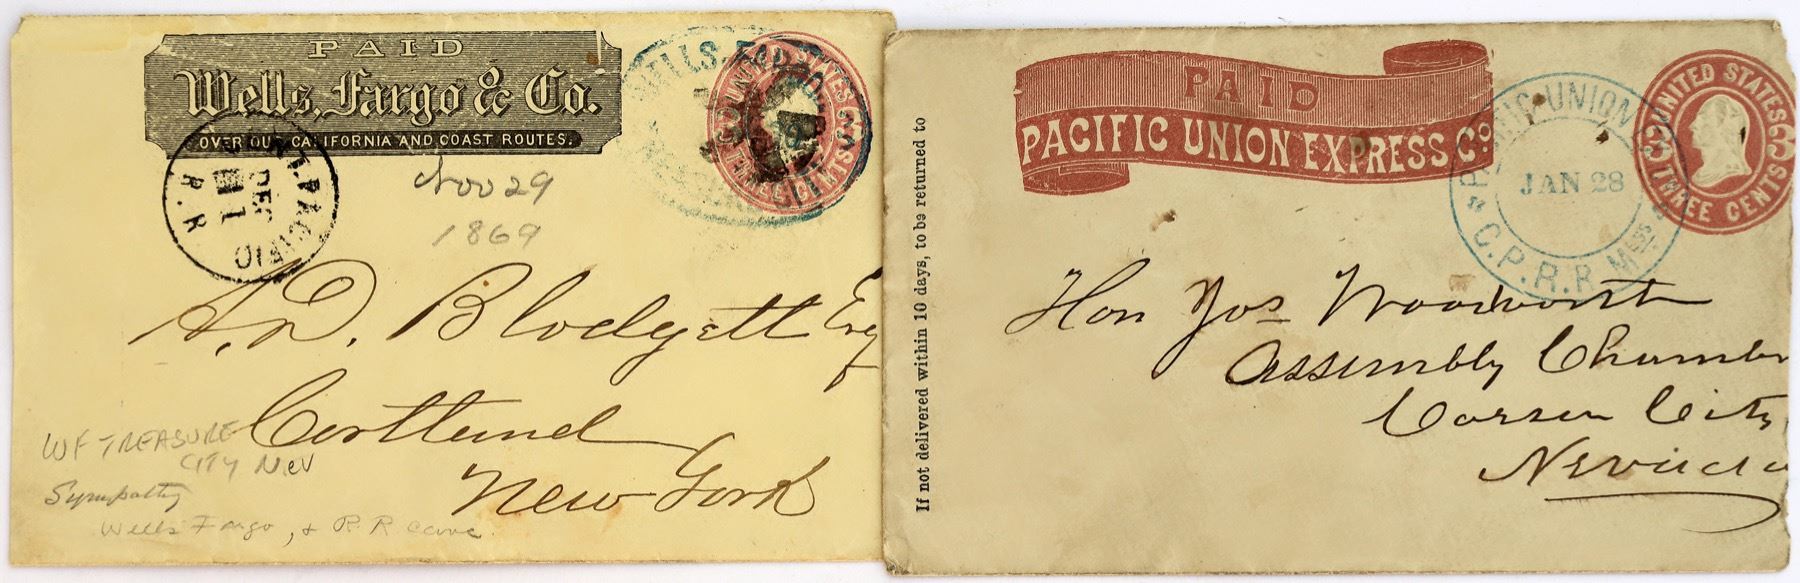 PAID
Wells, Fargo & Co.
OVER OUR CALIFORNIA AND COAST ROUTES.
WELLS, FARGO
UNITED STATES
THREE CENTS
PACIFIC
DEC
1
R.R
Nov 29
1869
A. D. Blodgett Esq
Cortland
New York
WF TREASURE
CITY Nev
Sympathy
Wells Fargo, & R.R. canc.
PAID
PACIFIC UNION EXPRESS Co
PACIFIC UNION
JAN 28
C.P.R.R. Mess
UNITED STATES
3 3
THREE CENTS
If not delivered within 10 days, to be returned to
Hon Jos Woodworth
Assembly Chamber
Carson City,
Nevada